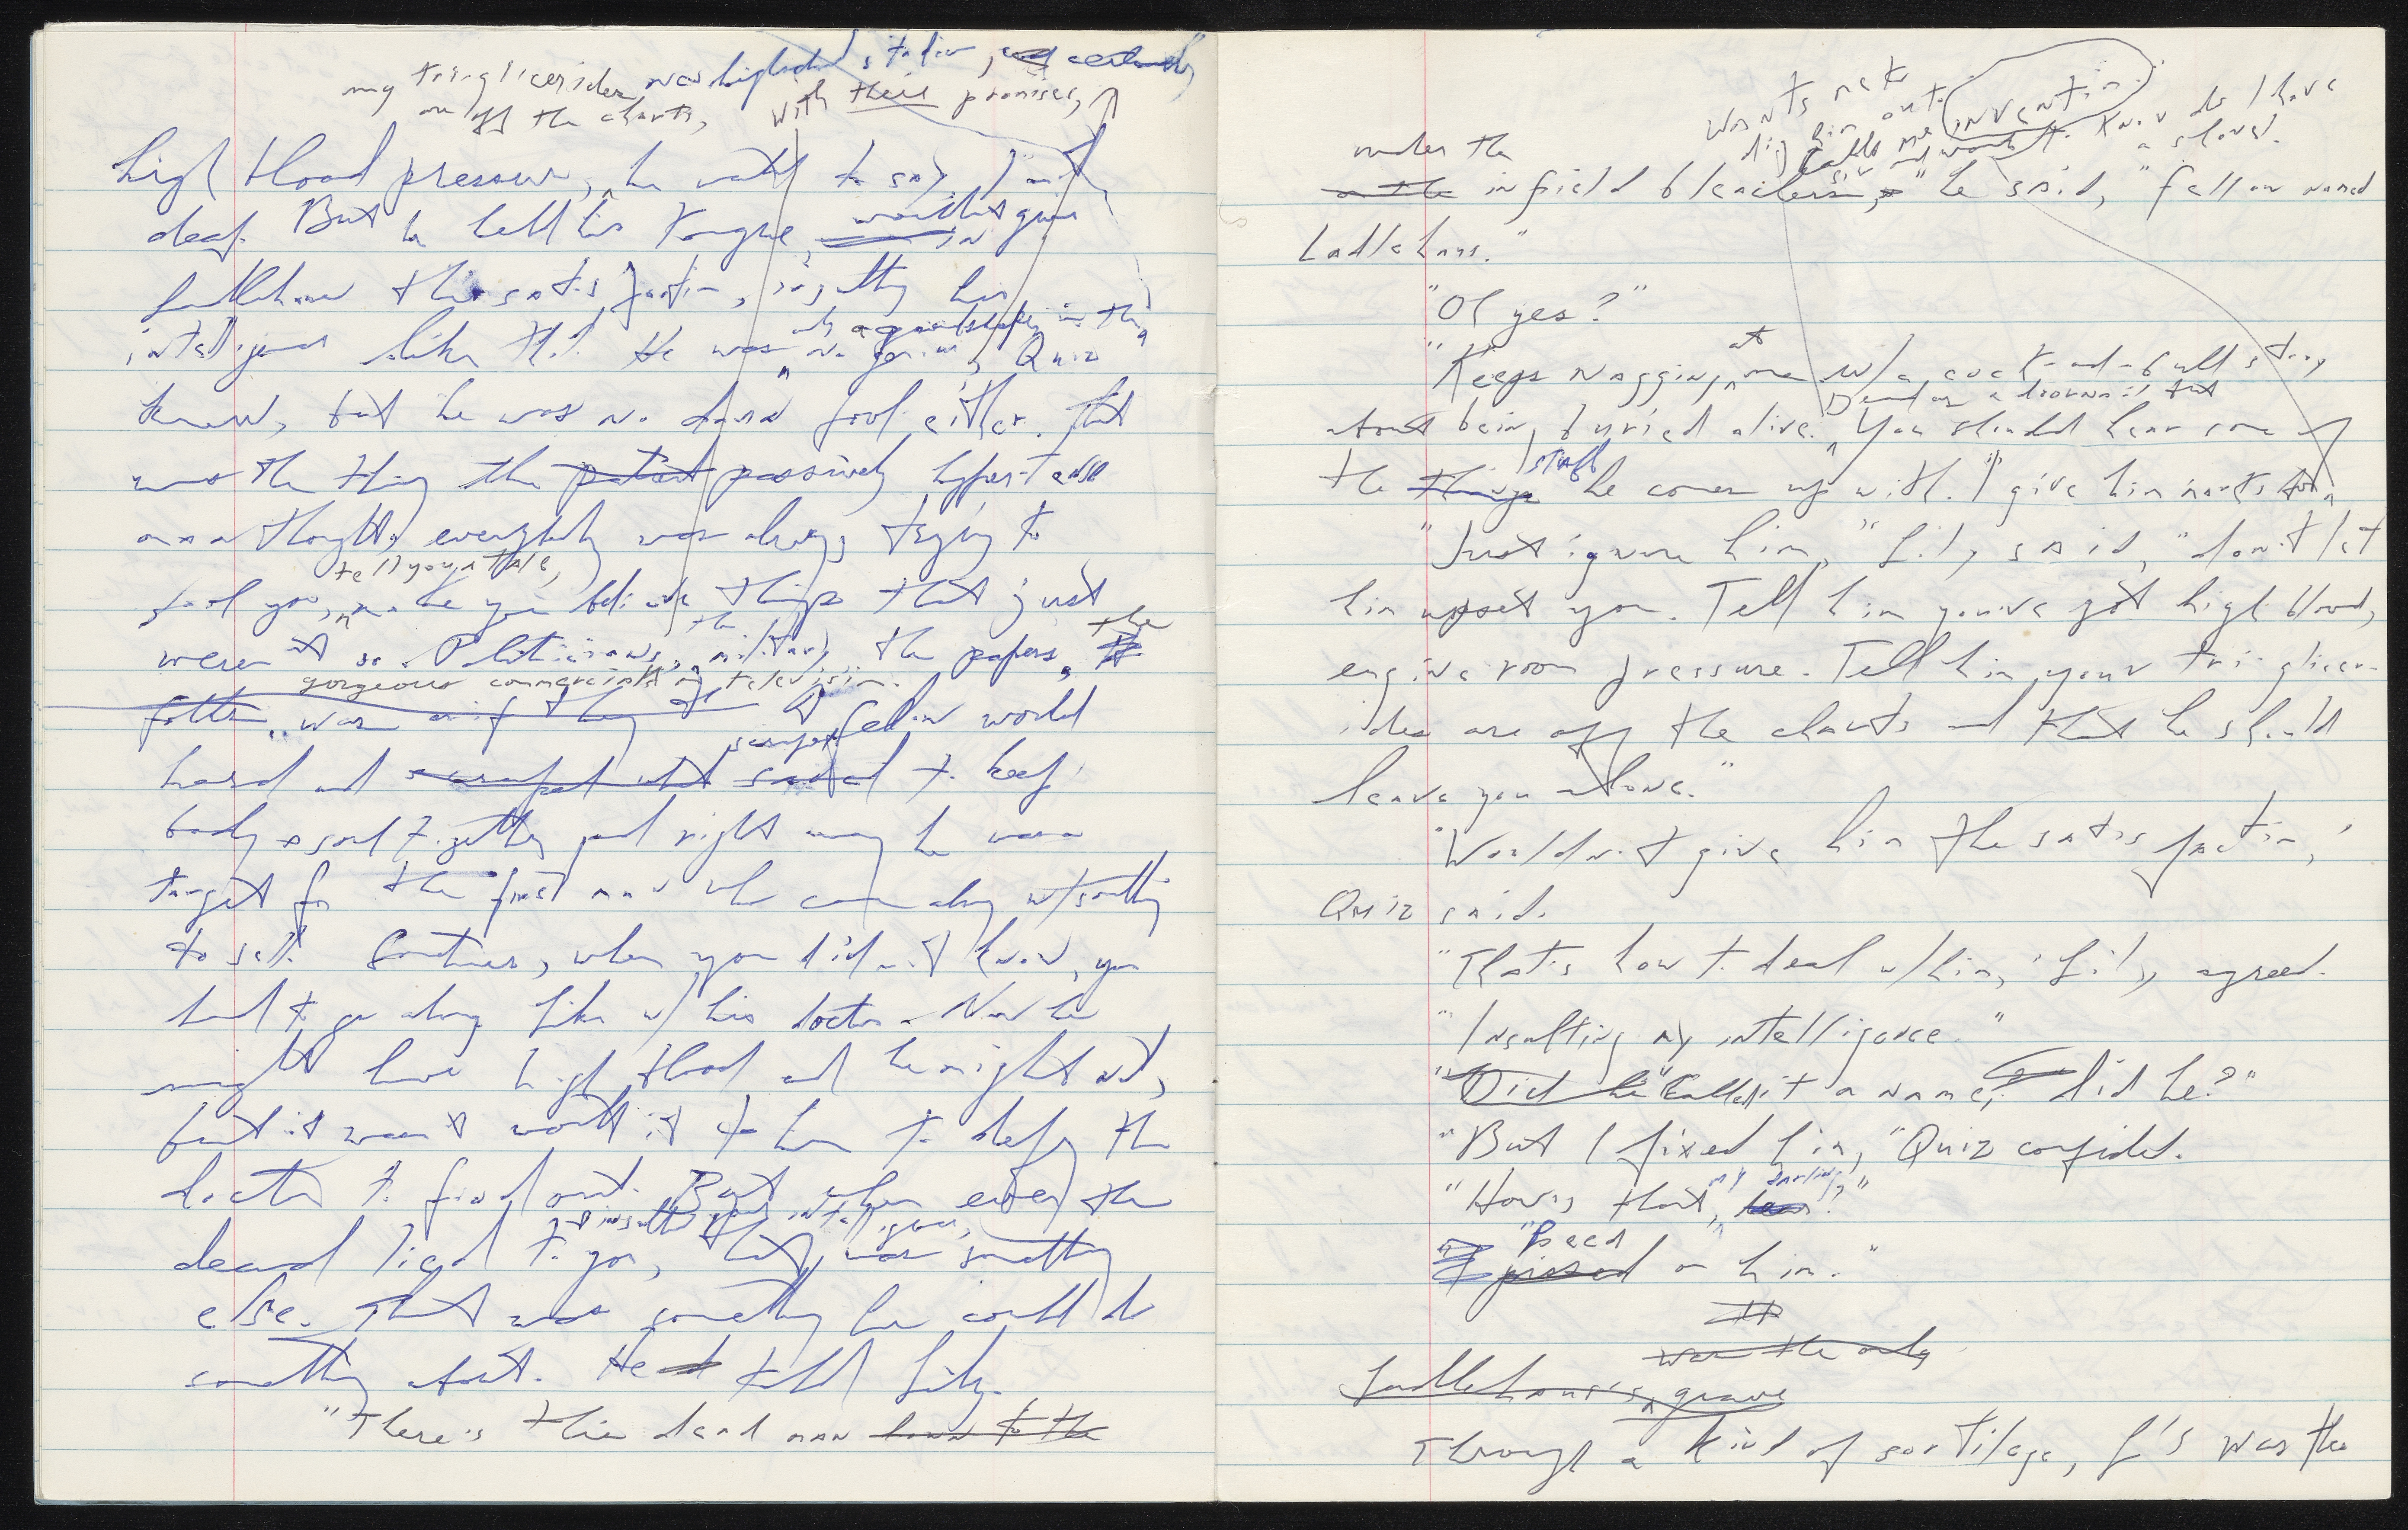 my triglicerides
are off the charts, with their promises,
high blood pressure, he wanted to say, I'm
deaf. But he held his tongue, wouldn't give
Ladlehaus this satisfaction, insulting his
intelligence like that. He was no genius, Quiz
only a groundskeeper in the
knew, but he was no damn fool either. That
was the thing the patient passively hypertense
man thought, everybody was always trying to
tell you a tale,
fool you, make you believe things that just
weren't so. Politicians, the military, the papers, the
gorgeous commercials on television.
was as if they fellow worked
scraped
hard and scraped and to keep
body & soul together and right away he was
target for the first man who came along w/ something
to sell. Sometimes, when you didn't know, you
had to go along like w/ his doctor. Now he
might have high blood and he might not,
but it wasn't worth it to him to defy the
doctor to find out. But when even the
and insulted your intelligence,
dead lied to you, that was something
else. That was something he could do
something about. He told Lily.
"There's this dead man down to the
wants me to
dig him out. invention. Know do I have
a shovel.
under the
on the infield bleachers," he said, "fellow named
Ladlehaus."
"Oh yes?"
"Keeps nagging at me w/ a cock-and-bull story
Dead as a doornail but
about being buried alive. You should hear some of
the things stuff he comes up with. I give him marks for
"Just ignore him," Lily said, "don't let
him upset you. Tell him you've got high blood,
engine room pressure. Tell him your triglicer-
ides are off the charts and that he should
leave you alone."
"Wouldn't give him the satisfaction,"
Quiz said.
"That's how to deal w/ him," Lily agreed.
"Insulting my intelligence."
"Did he called it a name, did he?"
"But I fixed him," Quiz confided.
"How's that, my darling?"
"Peed
I pissed on him."
was the only
Ladlehaus's grave
Through a kind of sortilege, L's was the